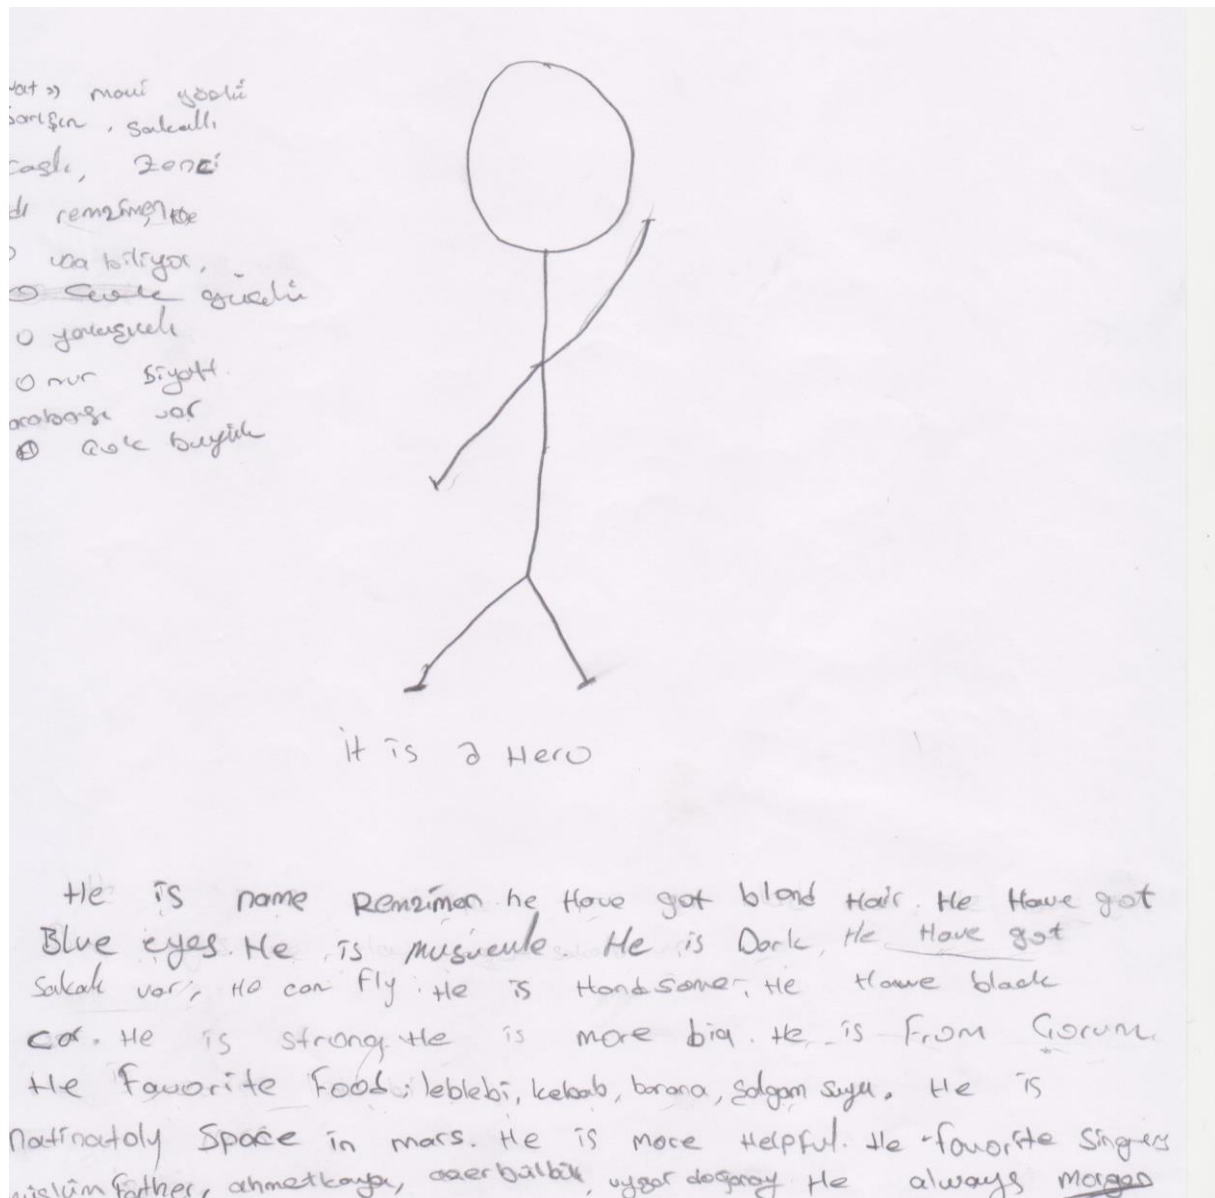 mavi gözlü
sarışın, sakallı
kaslı, zenci
remzimen
uça biliyor,
güçlü
O yakışıklı
siyah
arabası var
çok büyük
it is a Hero
He is name Remzimen he Have got blond Hair. He Have got
Blue eyes. He is musucule He is Dark. He Have got
Sakalı var, He can Fly. He is Handsome, He Have black
car. He is strong. He is more big. He is From Çorum.
He Favorite Food: leblebi, kebab, borana, şalgam suyu. He is
natinatoly Space in mars. He is more Helpful. He favorite Singers
müslüm father, ahmetkaya, azer bülbül, uygar doğanay He always